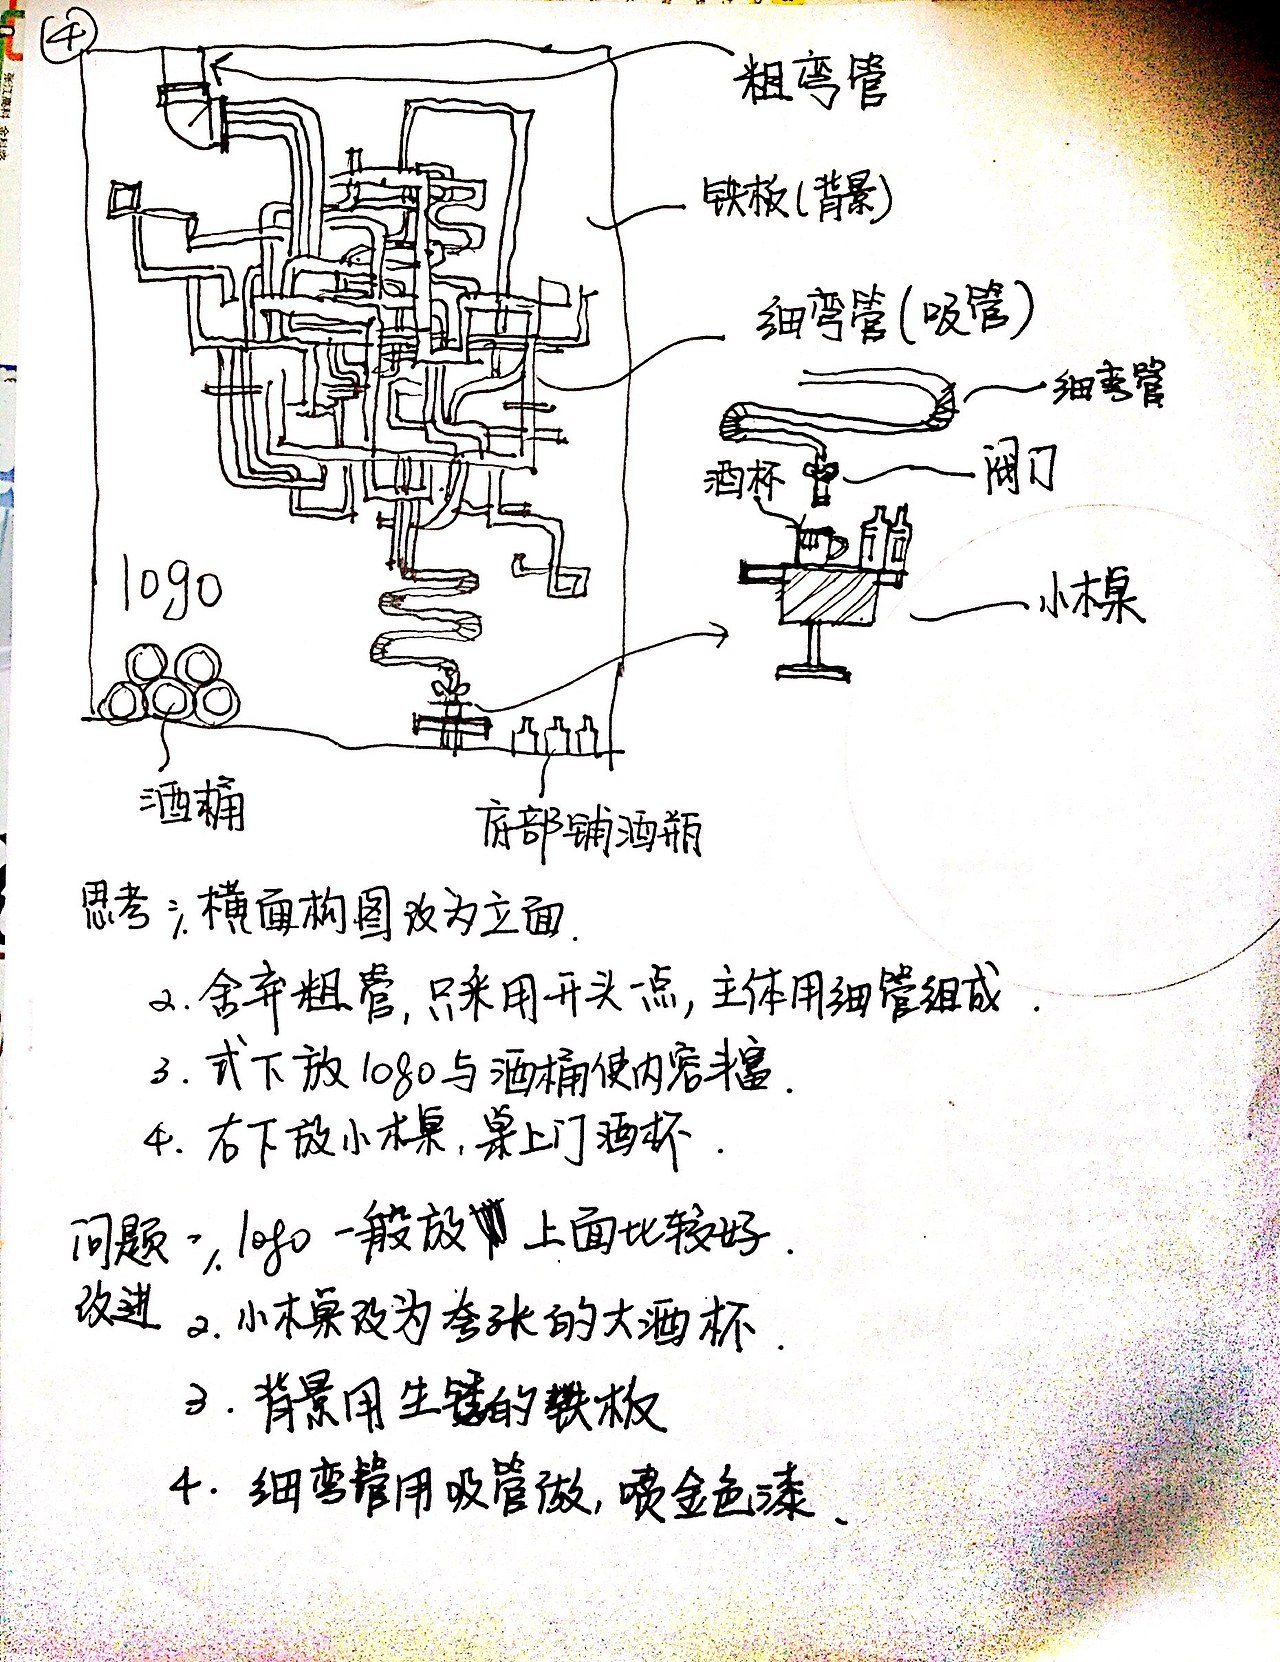 ④
粗弯管
铁板(背景)
细弯管(吸管)
细弯管
酒杯
阀门
小木桌
logo
酒桶
底部铺酒瓶
思考:1.横面构图改为立面.
2.舍弃粗管,只采用开头一点,主体用细管组成.
3.式下放logo与酒桶使内容丰富.
4.右下放小木桌,桌上门酒杯.
问题:1.logo一般放 上面比较好.
改进 2.小木桌改为夸张的大酒杯.
3.背景用生锈的铁板
4.细弯管用吸管做,喷金色漆.